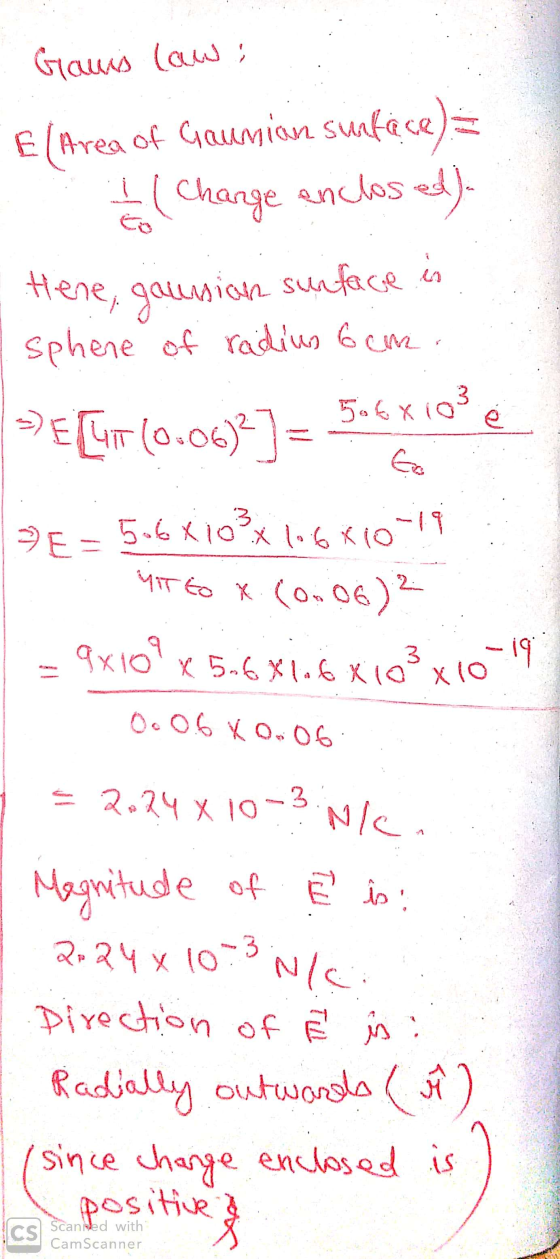 Gauss law :
E (Area of Gaussian surface) =
1/ε0 ( Charge enclosed).
Here, gaussian surface is
sphere of radius 6 cm.
⇒ E [4π (0.06)²] = 5.6 × 10³ e / ε0
⇒ E = 5.6 × 10³ × 1.6 × 10⁻¹⁹ / 4π ε0 × (0.06)²
= 9×10⁹ × 5.6 × 1.6 × 10³ × 10⁻¹⁹ / 0.06 × 0.06
= 2.24 × 10⁻³ N/C.
Magnitude of E⃗ is :
2.24 × 10⁻³ N/C.
Direction of E⃗ is :
Radially outwards ( r̂ )
(since charge enclosed is
positive)
CS Scanned with
CamScanner